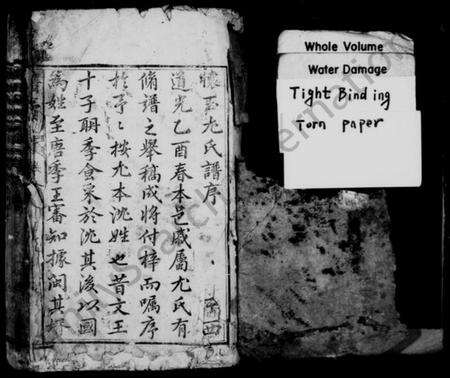 懷玉尤氏譜序
道光乙酉春本邑戚屬尤氏有
脩譜之舉稿成將付梓而囑序
於予〻按尤本沈姓也昔文王
十子聃季食采於沈其後以國
為姓至唐季王審知據閩其
Whole Volume
Water Damage
Tight Binding
Torn paper